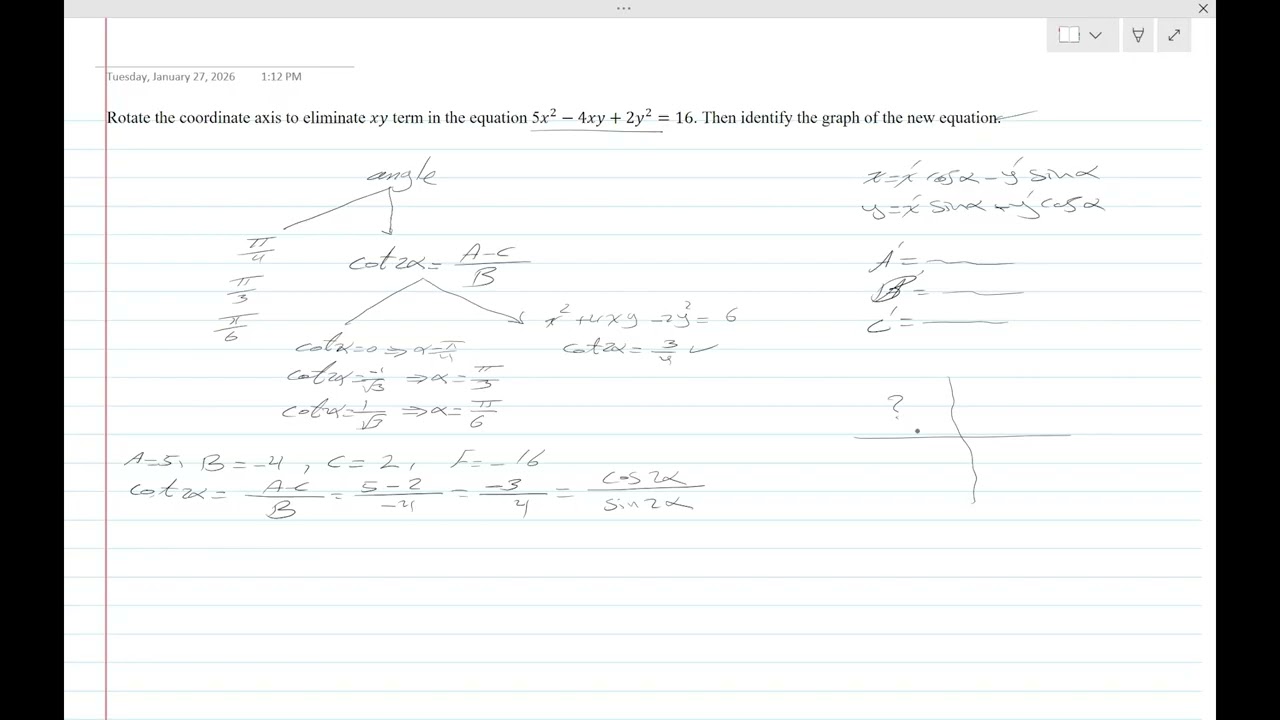 Tuesday, January 27, 2026 1:12 PM
Rotate the coordinate axis to eliminate xy term in the equation 5x² − 4xy + 2y² = 16. Then identify the graph of the new equation.
angle
π/4
π/3
π/6
cot2α = (A-C)/B
x² + 4xy - 2y² = 6
cot2α = 3/4 ✓
cot2α = 0 ⇒ α = π/4
cot2α = -1/√3 ⇒ α = π/3
cot2α = 1/√3 ⇒ α = π/6
x = x' cosα - y' sinα
y = x' sinα + y' cosα
A' =
B' =
C' =
?
A=5, B = -4, C = 2, F = -16
cot2α = (A-C)/B = (5-2)/-4 = -3/4 = cos2α/sin2α